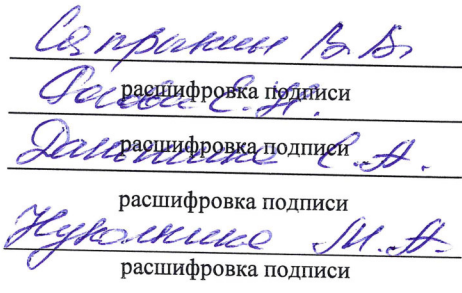 Сапрыкин В.В.
расшифровка подписи
Е.Н.
расшифровка подписи
Данькина С.А.
расшифровка подписи
Нуколкина М.А.
расшифровка подписи